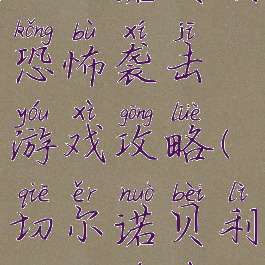 kǒng bù xí jī
恐怖袭击
yóu xì gōng lüè
游戏攻略(
qiē ěr nuò bèi lì
切尔诺贝利